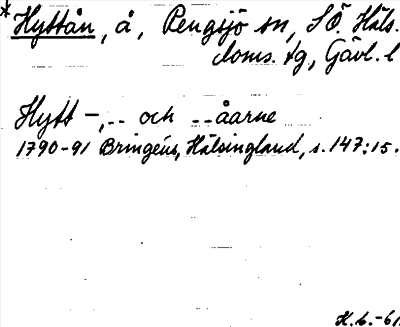 * Hyttån, å, Rengsjö sn, SÖ. Häls.
doms. tg, Gävl. l
Hytt -, -- och --åarne
1790-91 Bringéus, Hälsingland, s. 147:15.
H.L.-61.